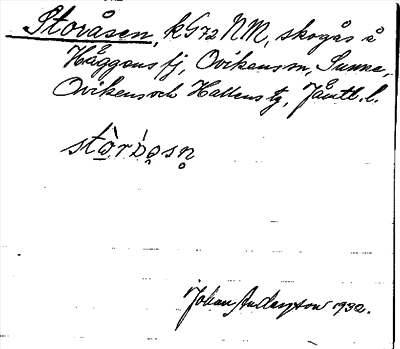 Storåsen, k G72 NM, skogås å
Häggens fj, Ovikens sn, Sunne,
Ovikens och Hallens tg, Jämtl. l.
stòrɒ̀sn̥
Johan Anderson 1932.